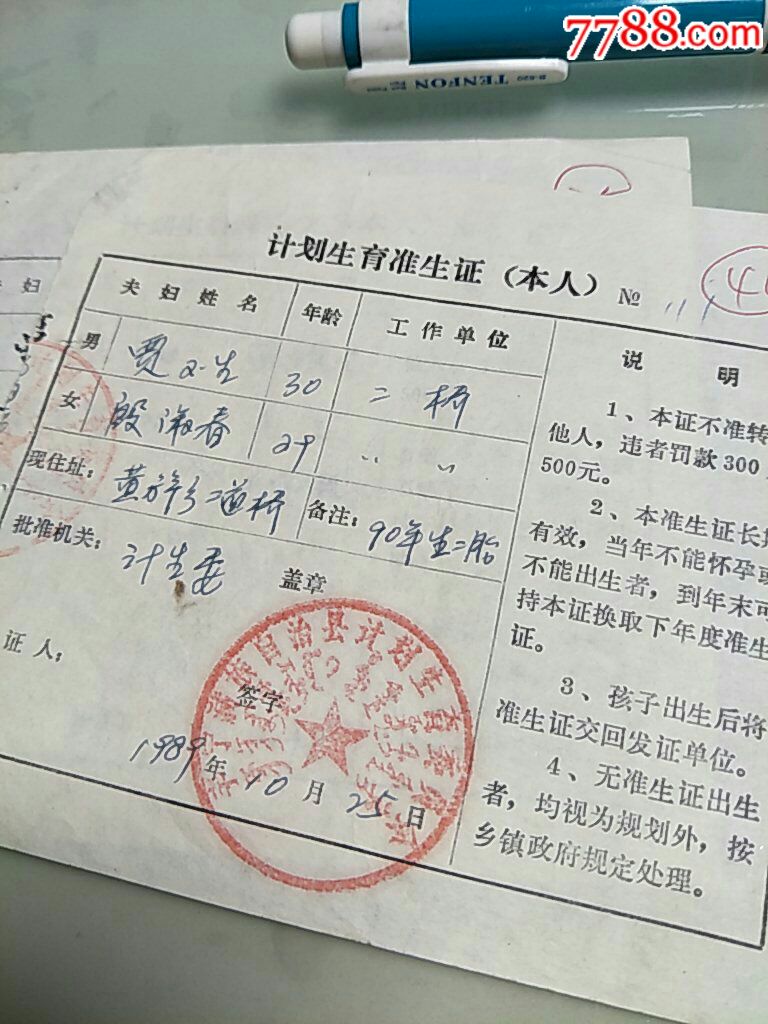 7788.com
TENFON
B-620
计划生育准生证（本人） №
夫妇姓名 年龄 工作单位
男 贾 生 30 二桥
女 殷淑春 29 〃 〃
现住址： 二道桥 备注： 90年生二胎
批准机关： 计生委 盖章
证人；
签字
1989年10月25日
自治县计划生育委员会
说 明
1、本证不准转
他人，违者罚款300
500元。
2、本准生证长期
有效，当年不能怀孕或
不能出生者，到年末可
持本证换取下年度准生
证。
3、孩子出生后将
准生证交回发证单位。
4、无准生证出生
者，均视为规划外，按
乡镇政府规定处理。
妇